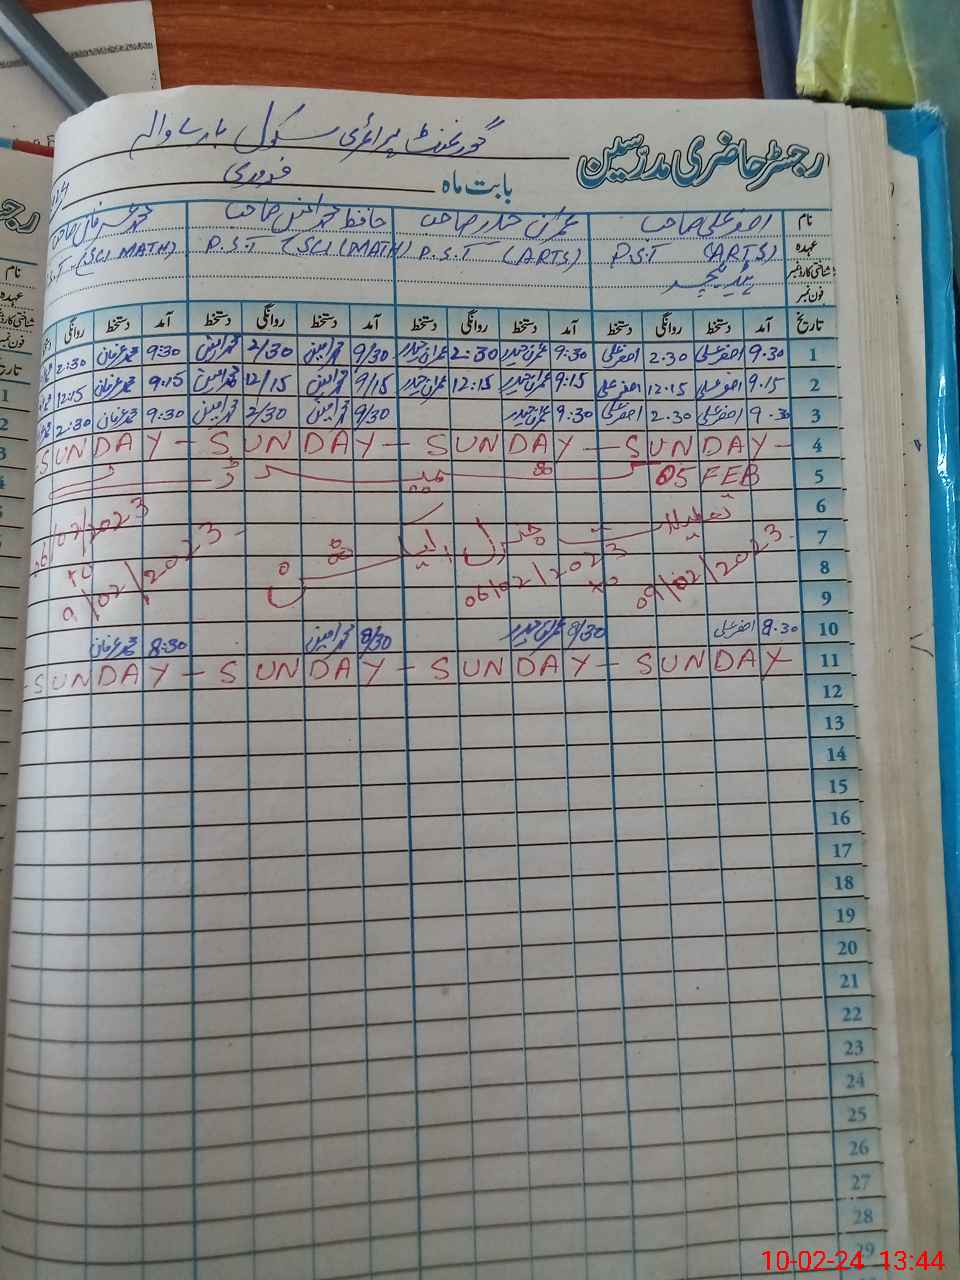 رجسٹر حاضری مدرسین گورنمنٹ پرائمری سکول
بابت ماہ فروری
نام اصغر علی صاحب عمران حیدر صاحب حافظ محمد صاحب محمد عرفان صاحب
عہدہ P.S.T (ARTS) P.S.T (ARTS) P.S.T (SCI (MATH) S.T (SCI MATH)
شناختی کارڈ نمبر ہیڈ ٹیچر
فون نمبر
تاریخ آمد دستخط روانگی دستخط آمد دستخط روانگی دستخط آمد دستخط روانگی دستخط آمد دستخط روانگی
1 9.30 اصغر علی 2.30 اصغر علی 9:30 عمران حیدر 2:30 عمران حیدر 9/30 محمد امین 2/30 محمد امین 9:30 محمد عرفان 2:30
2 9.15 اصغر علی 12.15 اصغر علی 9:15 عمران حیدر 12:15 عمران حیدر 9/15 محمد امین 12/15 محمد امین 9.15 محمد عرفان 12:15
3 9.30 اصغر علی 2.30 اصغر علی 9:30 عمران حیدر 9/30 محمد امین 2/30 محمد امین 9:30 محمد عرفان 2:30
4 SUNDAY – SUNDAY – SUNDAY – SUNDAY –
5 05 FEB
6
7 تعطیلات جنرل الیکشن
8 06/02/2023 to 09/02/2023 06/02/2023 to 9/02/2023
9
10 8.30 اصغر علی 8/30 عمران حیدر 8/30 محمد امین 8:30 محمد عرفان
11 SUNDAY – SUNDAY – SUNDAY – SUNDAY –
12
13
14
15
16
17
18
19
20
21
22
23
24
25
26
27
28
29
10-02-24 13:44